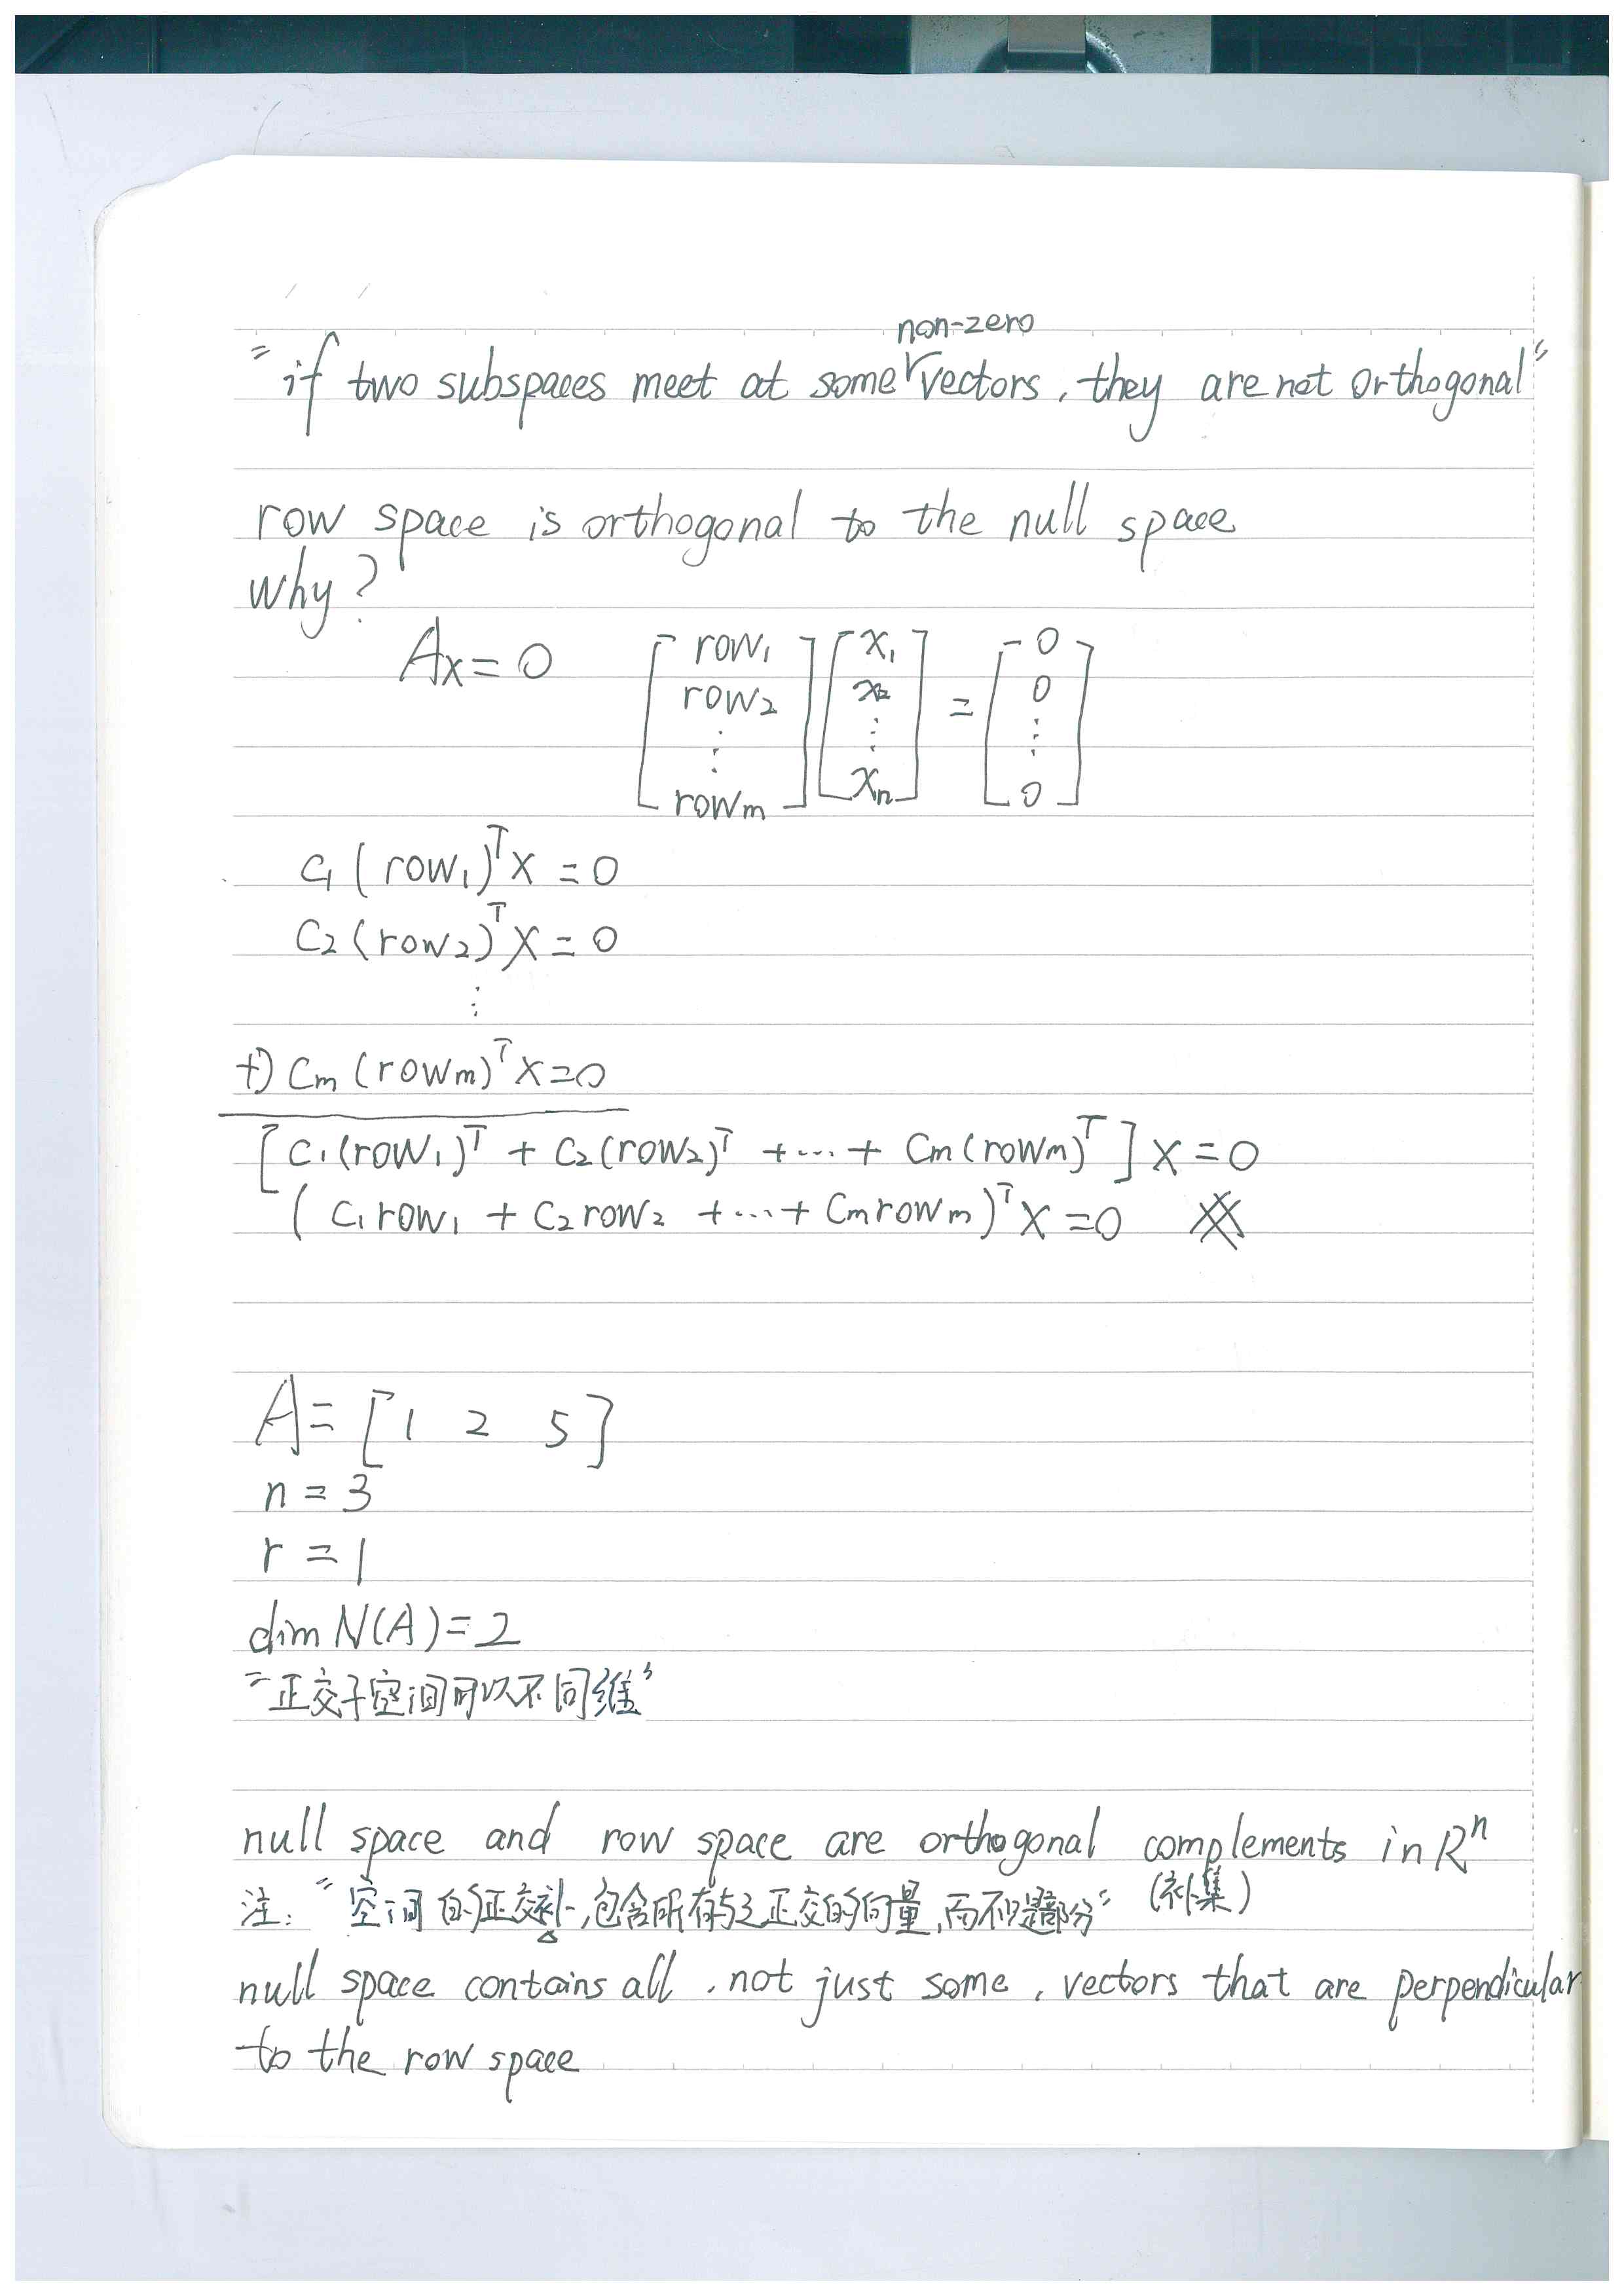 "if two subspaces meet at some non-zero vectors, they are not orthogonal"
row space is orthogonal to the null space
why?
Ax=0 [row1 row2 ⋮ rowm] [x1 x2 ⋮ xn] = [0 0 ⋮ 0]
c1(row1)^T x = 0
c2(row2)^T x = 0
⋮
+) cm(rowm)^T x=0
[c1(row1)^T + c2(row2)^T + ... + cm(rowm)^T] x = 0
(c1row1 + c2row2 + ... + cmrowm)^T x = 0
A = [1 2 5]
n = 3
r = 1
dim N(A) = 2
"正交子空间可以不同维"
null space and row space are orthogonal complements in R^n
注: "空间的正交补,包含所有与之正交的向量,而不只是部分" (补集)
null space contains all, not just some, vectors that are perpendicular
to the row space